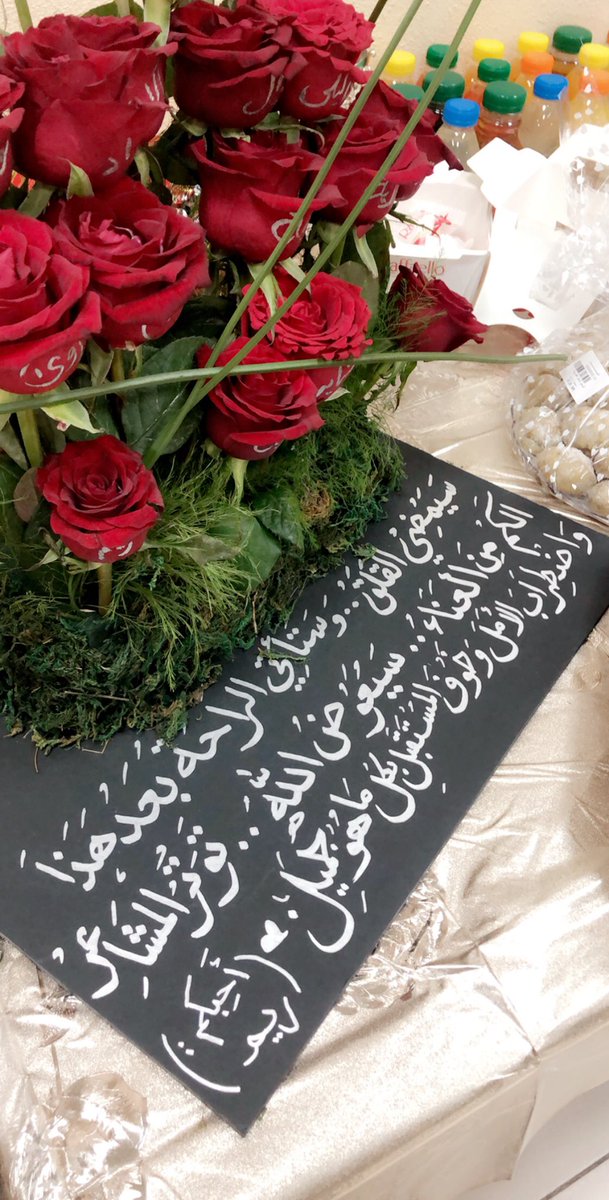 سَيَمْضِي القَلَق.. وَسَتَأتِي الراحة بَعْدَ هَذَا
الكَمّ مِنَ العَنَاء.. سَيُعَوِّضُ اللَّه.. تَوَتُّرَ المَشَاعِر
وَاضطِرابَ الأمَل وخَوفَ المُستَقبَل بكُل مَا هُوَ جَميل
(أحبكم
ريم)